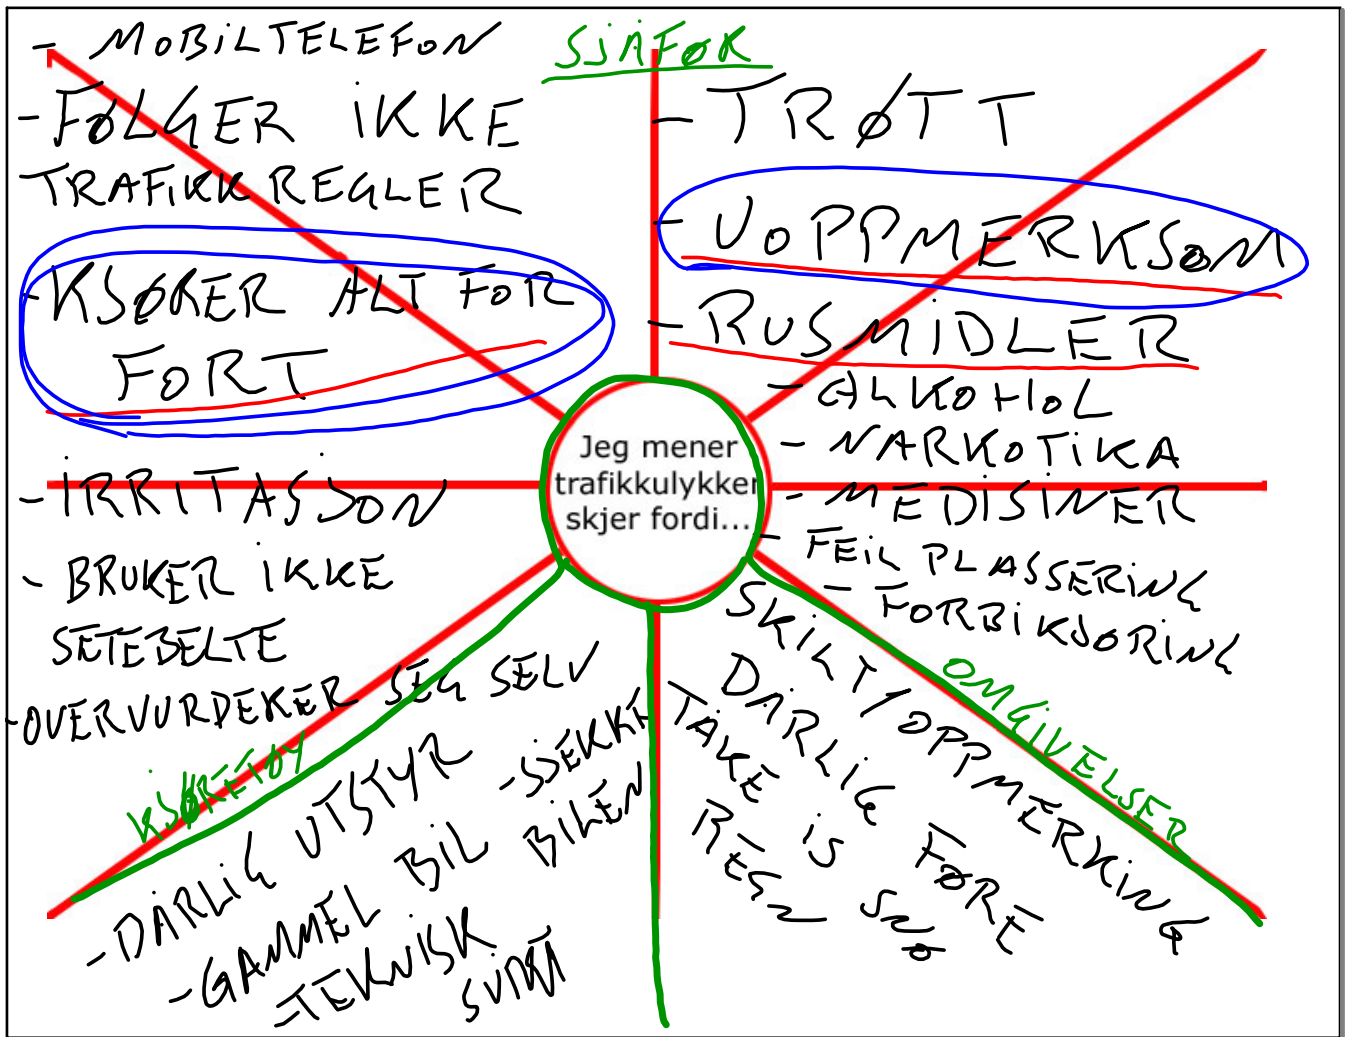 SJÅFØR
- MOBILTELEFON
- FØLGER IKKE
TRAFIKKREGLER
- KJØRER ALT FOR
FORT
- IRRITASJON
- BRUKER IKKE
SETEBELTE
- OVERVURDERER SEG SELV
- TRØTT
- UOPPMERKSOM
- RUSMIDLER
- ALKOHOL
- NARKOTIKA
- MEDISINER
- FEIL PLASSERING
- FORBIKJØRING
Jeg mener
trafikkulykker
skjer fordi...
KJØRETØY
- DÅRLIG UTSTYR
- GAMMEL BIL
- TEKNISK
- SJEKKE
BILEN
OMGIVELSER
SKILT/OPPMERKING
DÅRLIG FØRE
TÅKE IS SNØ
REGN